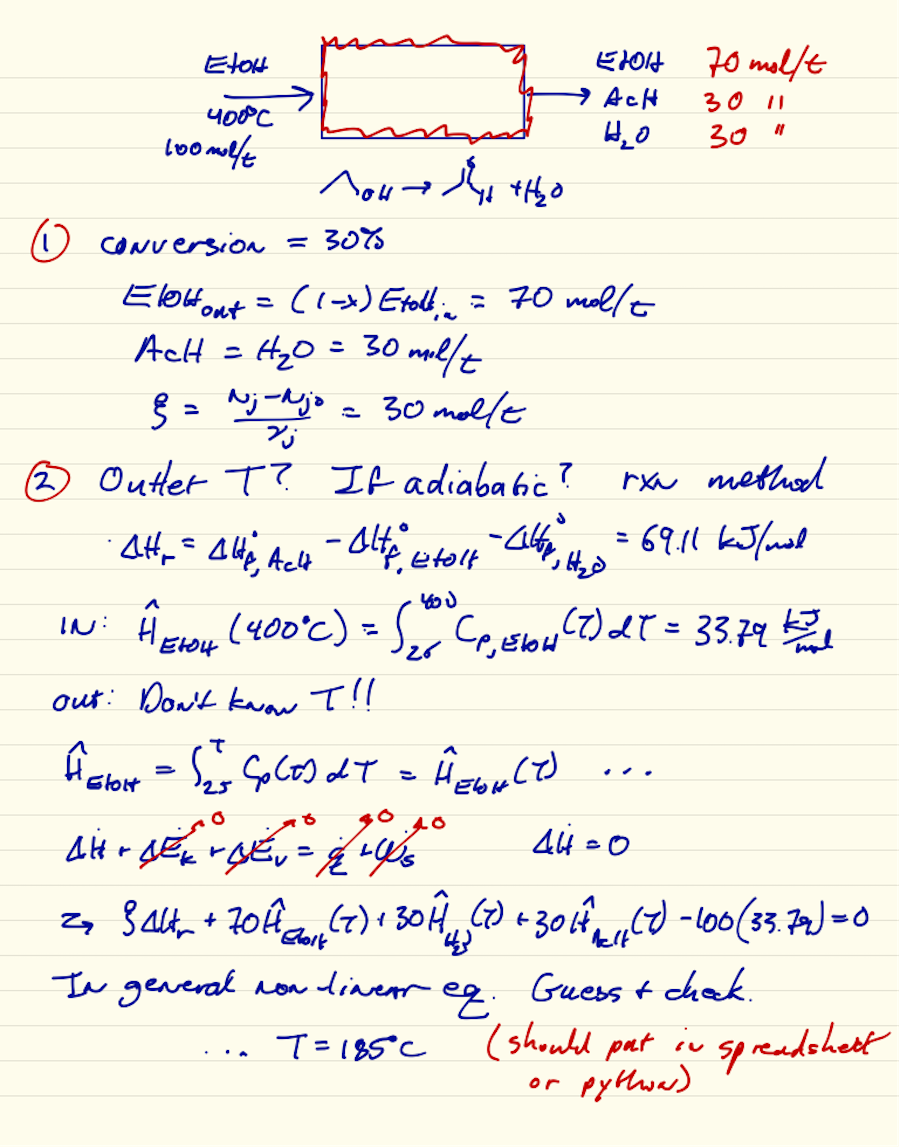 EtOH
400°C
100 mol/t
EtOH 70 mol/t
AcH 30 "
H₂O 30 "
OH → H + H₂O
① conversion = 30%
EtOH_out = (1-x) EtOH_in = 70 mol/t
AcH = H₂O = 30 mol/t
ξ = (N_j - N_j0)/ν_j = 30 mol/t
② Outlet T? If adiabatic? rxn method
ΔH_r = ΔH°_f, AcH - ΔH°_f, EtOH - ΔH°_f, H₂O = 69.11 kJ/mol
IN: Ĥ_EtOH (400°C) = ∫₂₅⁴⁰⁰ C_p, EtOH (T) dT = 33.79 kJ/mol
out: Don't know T!!
Ĥ_EtOH = ∫₂₅ᵀ C_p(T) dT = Ĥ_EtOH (T) ...
ΔḢ + ΔĖ_k→0 + ΔĖ_v→0 = q̇→0 + ẇ_s→0 ΔḢ = 0
↳ ξΔH_r + 70Ĥ_EtOH(T) + 30Ĥ_H₂O(T) + 30Ĥ_AcH(T) - 100(33.79) = 0
In general non linear eq. Guess + check.
... T = 185°C (should put in spreadsheet
or python)